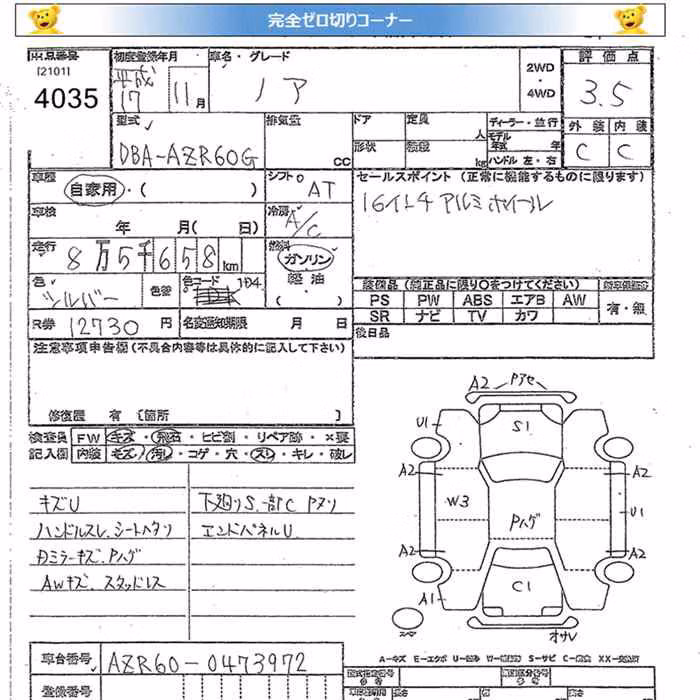 完全ゼロ切りコーナー
出品番号 初度登録年月 車名・グレード 評価点
[2101]
4035 平成17 11月 ノア 2WD・4WD 3.5
型式 排気量 ドア 定員 ディーラー・並行 外装 内装
DBA-AZR60G CC 形状 人 モデル年式 年 C C
kg ハンドル 左・右
車歴 シフト セールスポイント (正常に機能するものに限ります)
自家用・( ) AT 16インチ アルミホイール
車検 冷房
年 月(日) A/C
走行 燃料
8万5千658km ガソリン
軽油
色 色替 色コード 1D4 ( )
シルバー 装備品 (純正品に限り○をつけてください)
PS PW ABS エアB AW 有・無
R券 12730円 名変通知期限 月 日 SR ナビ TV カワ
後日品
注意事項申告欄 (不具合内容等は具体的に記入して下さい)
修復歴 有 [箇所 ]
検査員 FW キズ・飛石・ヒビ割・リペア跡・×要
記入欄 内装 キズ・汚れ・コゲ・穴・スレ・キレ・破レ
キズU 下廻りS.一部C Pヌリ
ハンドルスレ.シートヘタリ エンドパネルU
Dミラーキズ.Pハゲ
AWキズ.スタッドレス
A2 Pアセ
U1 S1
A2 A2
W3 Pハゲ U1
A2 A2
A1 C1
スペア オサレ
A-キズ E-エクボ U-凹み S-サビ
車台番号 AZR60-0473972
登録番号